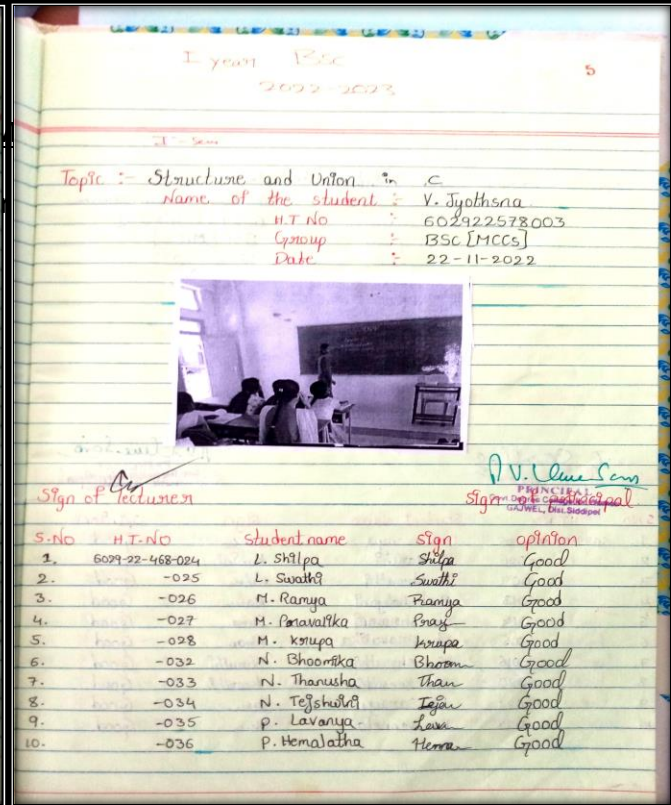 I year BSc
5
2022-2023
I - Sem
Topic :- Structure and Union in C
Name of the student :- V. Jyothsna
H.T NO :- 602922578003
Group :- BSC [MCCs]
Date :- 22-11-2022
Sign of lecturer
Sign of principal
PRINCIPAL
GAJWEL, Dist. Siddipet
S.No H.T.NO Student name sign opinion
1. 6029-22-468-024 L. Shilpa Shilpa Good
2. -025 L. Swathi Swathi Good
3. -026 M. Ramya Ramya Good
4. -027 M. Pranavalika Good
5. -028 M. Krupa Krupa Good
6. -032 N. Bhoomika Bhoom Good
7. -033 N. Thanusha Than Good
8. -034 N. Tejshwini Good
9. -035 P. Lavanya Good
10. -036 P. Hemalatha Hema Good